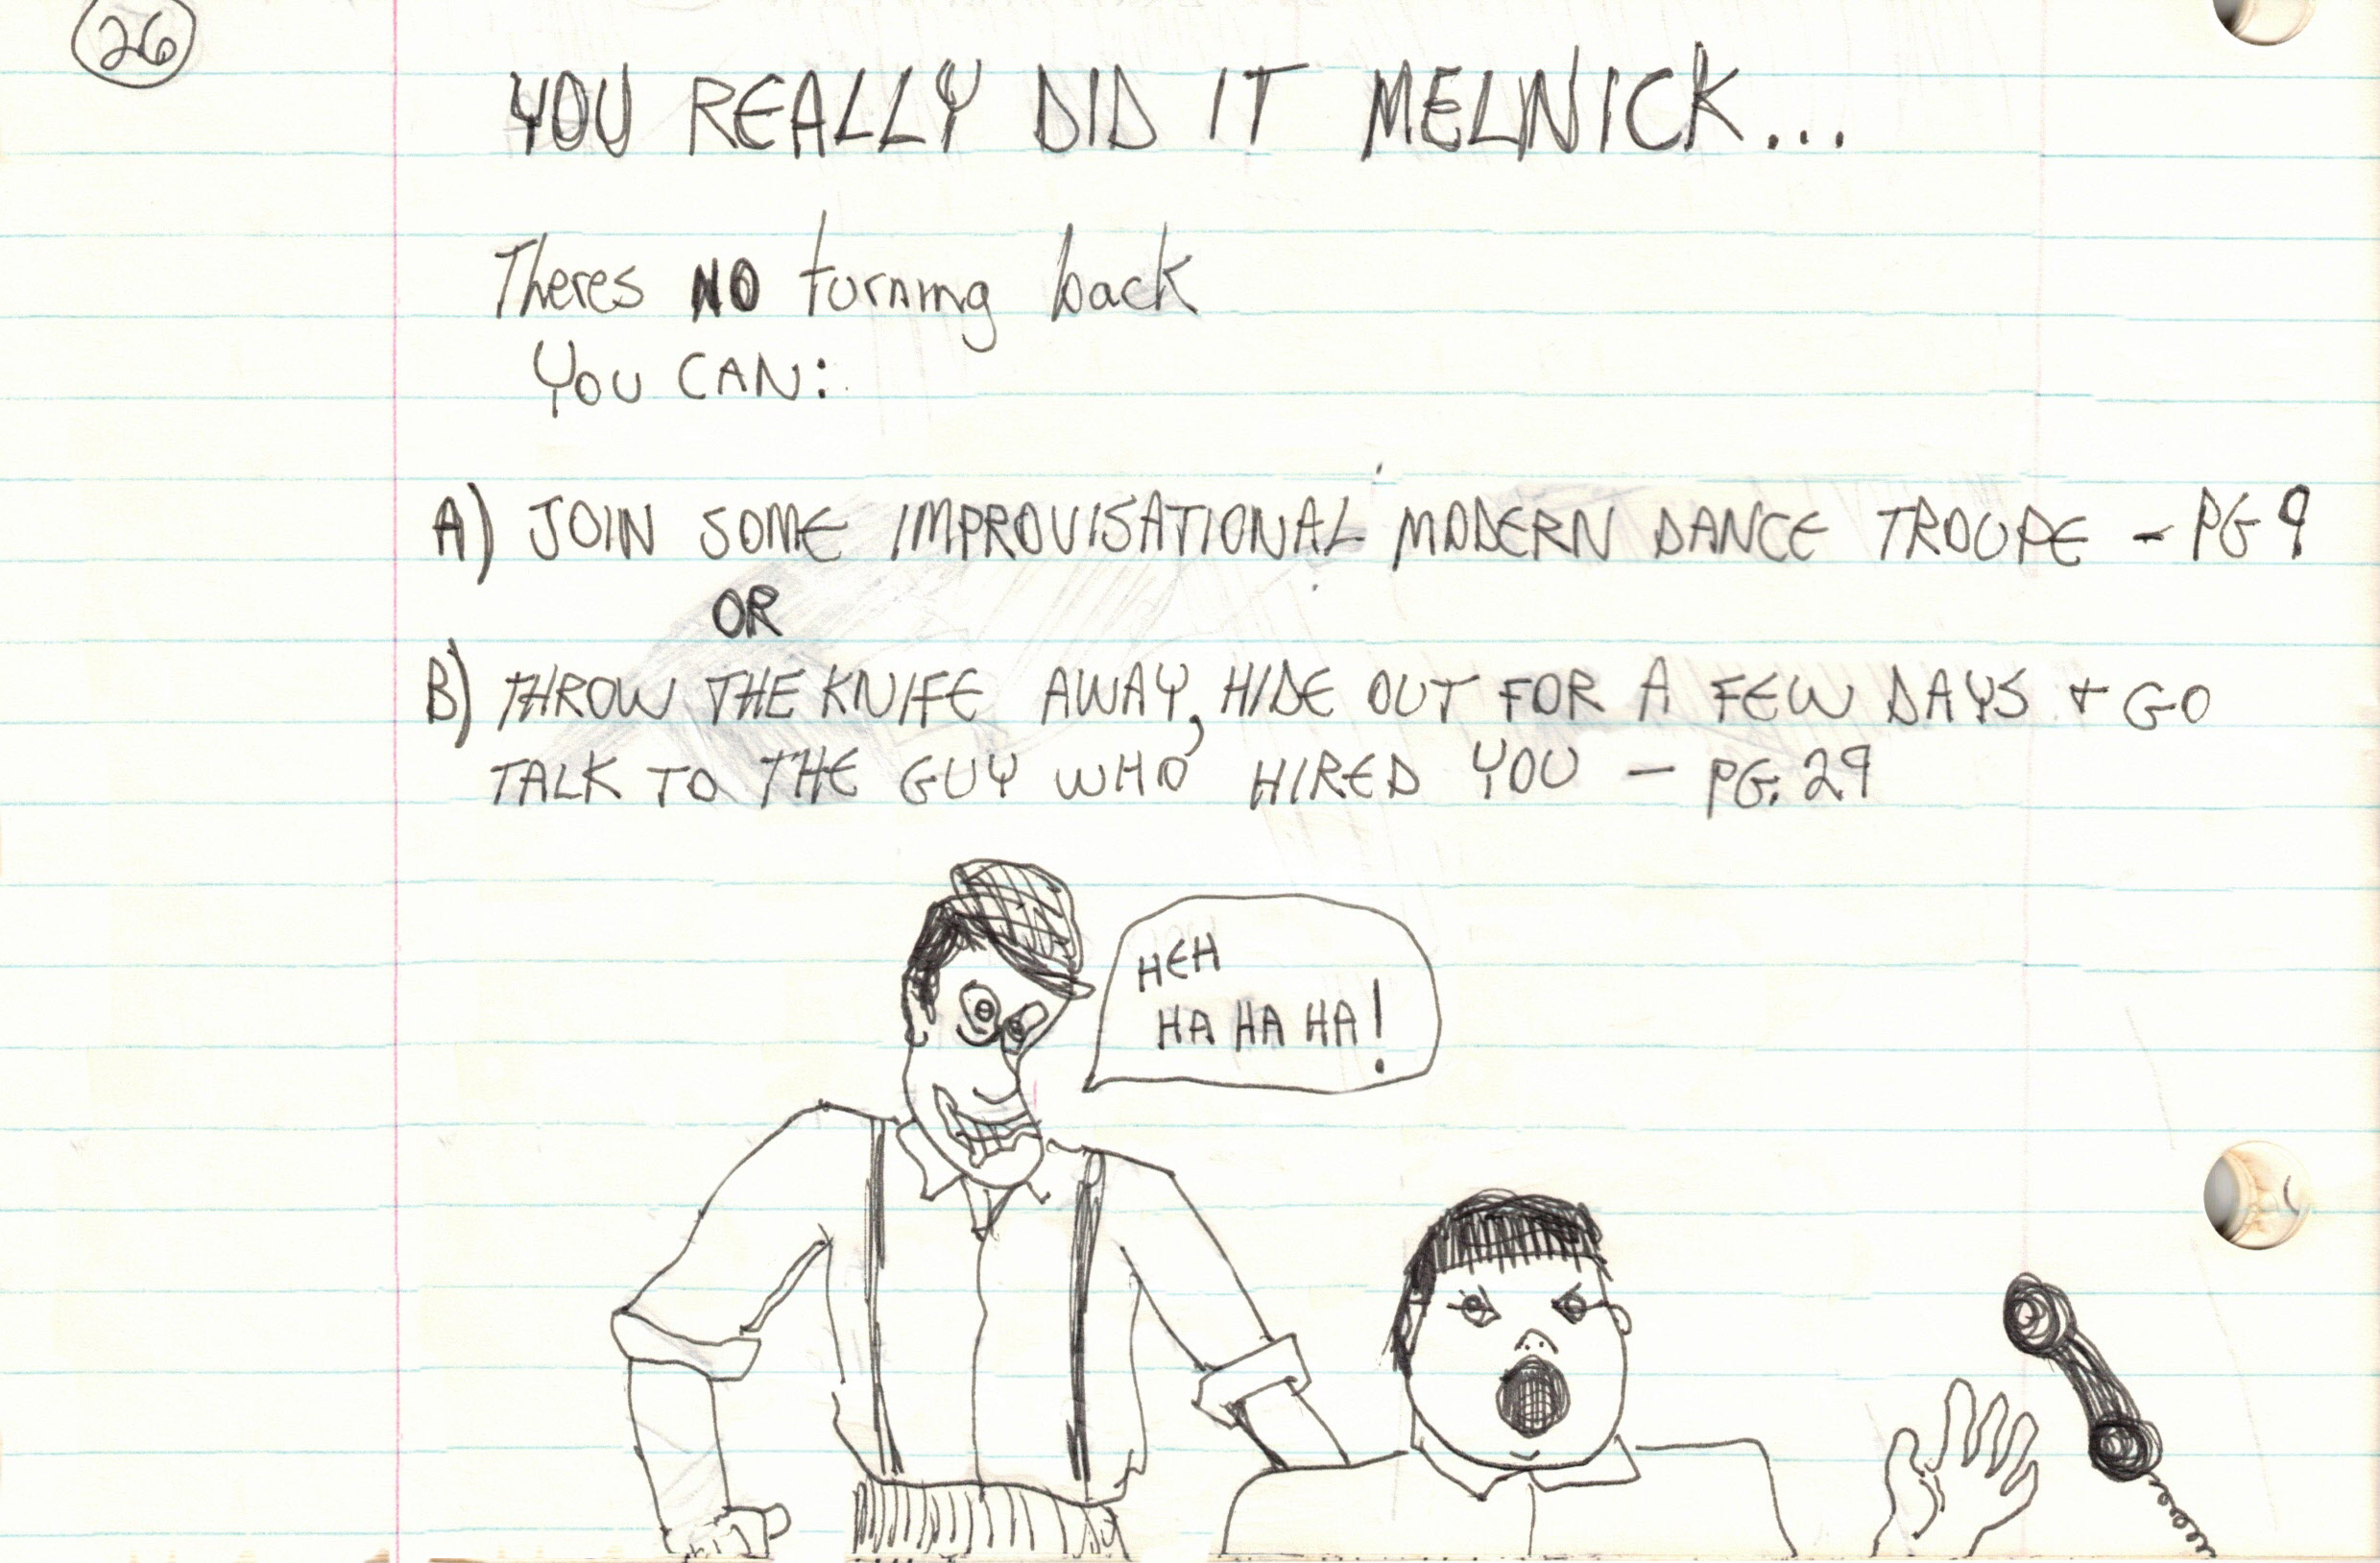 26
YOU REALLY DID IT MELNICK...
Theres NO turning back
YOU CAN:
A) JOIN SOME IMPROVISATIONAL MODERN DANCE TROUPE - PG 9
OR
B) THROW THE KNIFE AWAY, HIDE OUT FOR A FEW DAYS + GO
TALK TO THE GUY WHO HIRED YOU - PG. 29
HEH
HA HA HA!